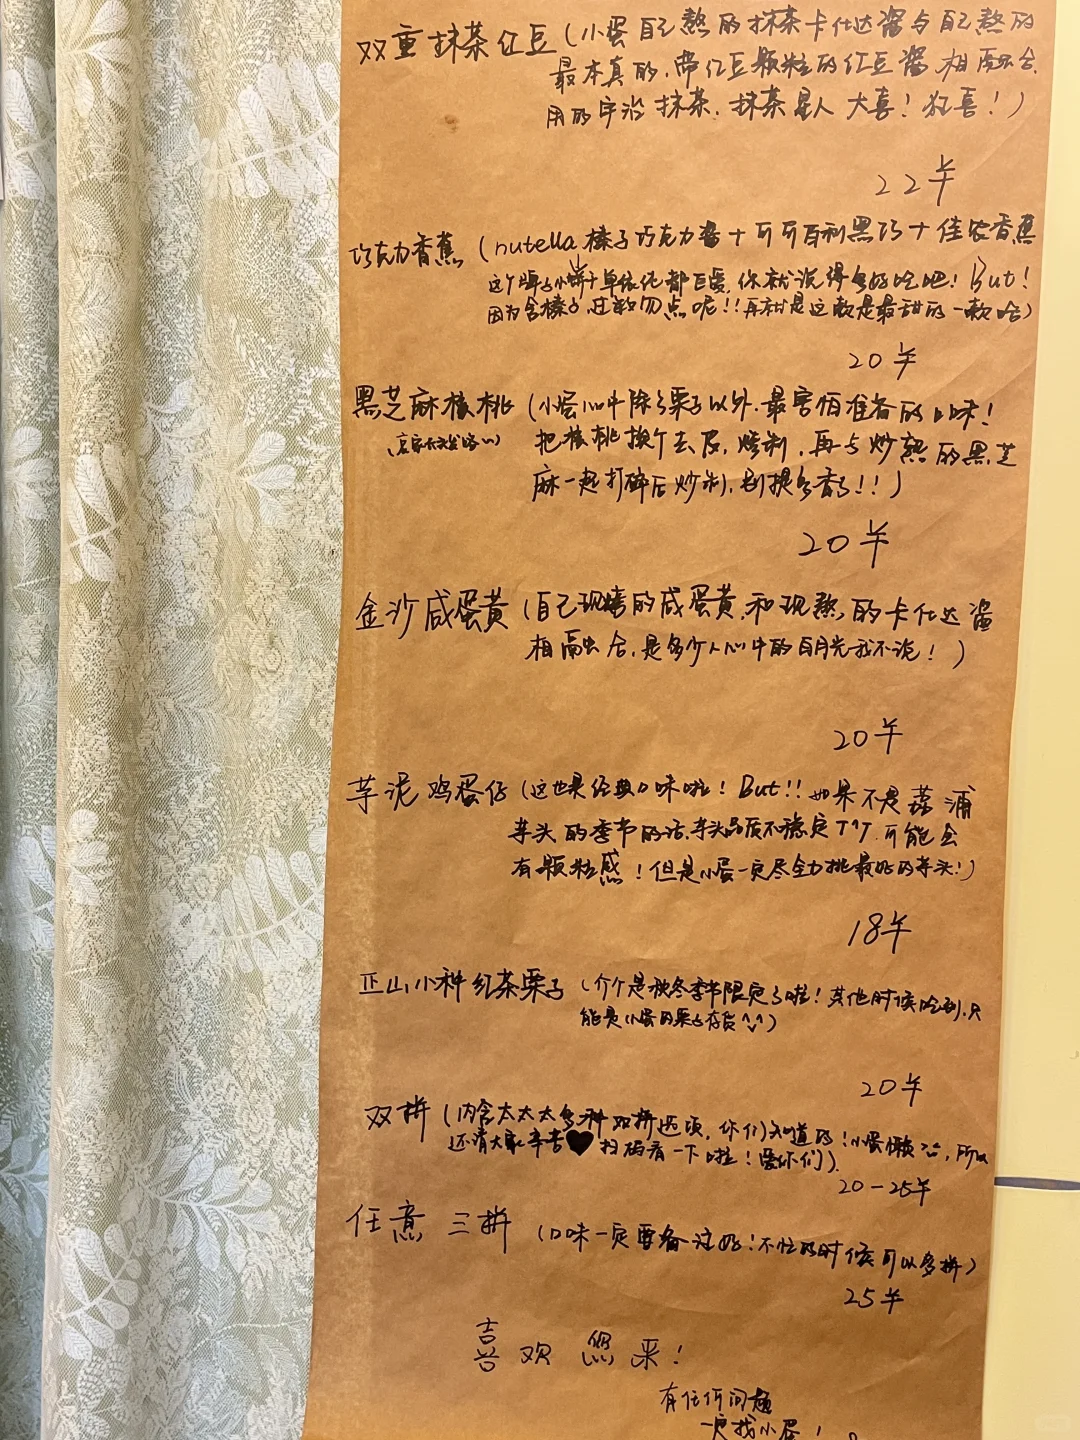 双重抹茶红豆（小蛋自己熬的抹茶卡仕达酱与自己熬的
最本真的，带红豆颗粒的红豆酱相融合，
用的宇治抹茶，抹茶星人大喜！狂喜！）
22半
巧克力香蕉（nutella榛子巧克力酱+可可百利黑巧+佳农香蕉
这个牌子小饼干单依他都巨爱，你就说得多好吃吧！But！
因为含榛子，过敏勿点呢！！再就是这款是最甜的一款哈）
20半
黑芝麻核桃（小蛋心中除了栗子以外，最害怕准备的口味！
把核桃挨个去皮，烤制，再与炒熟的黑芝
麻一起打碎后炒制，别提多香了！！）
20半
金沙咸蛋黄（自己现烤的咸蛋黄，和现熬的卡仕达酱
相融合，是多少人心中的白月光我不说！）
20半
芋泥鸡蛋仔（这也是经典口味啦！But！！如果不是荔浦
芋头的季节的话，芋头品质不稳定T^T，可能会
有颗粒感！但是小蛋一定尽全力挑最好的芋头！）
18半
正山小种红茶栗子（介个是秋冬季节限定了啦！其他时候吃到，只
能是小蛋的栗子存货^_^）
20半
双拼（内含太太太多种双拼选项，你们知道的！小蛋懒，所以
还请大家辛苦♥扫码看一下啦！爱你们）
20－25半
任意三拼（口味一定要备注好！不忙的时候可以多拼）
25半
喜欢您来！
有任何问题
一定找小蛋！